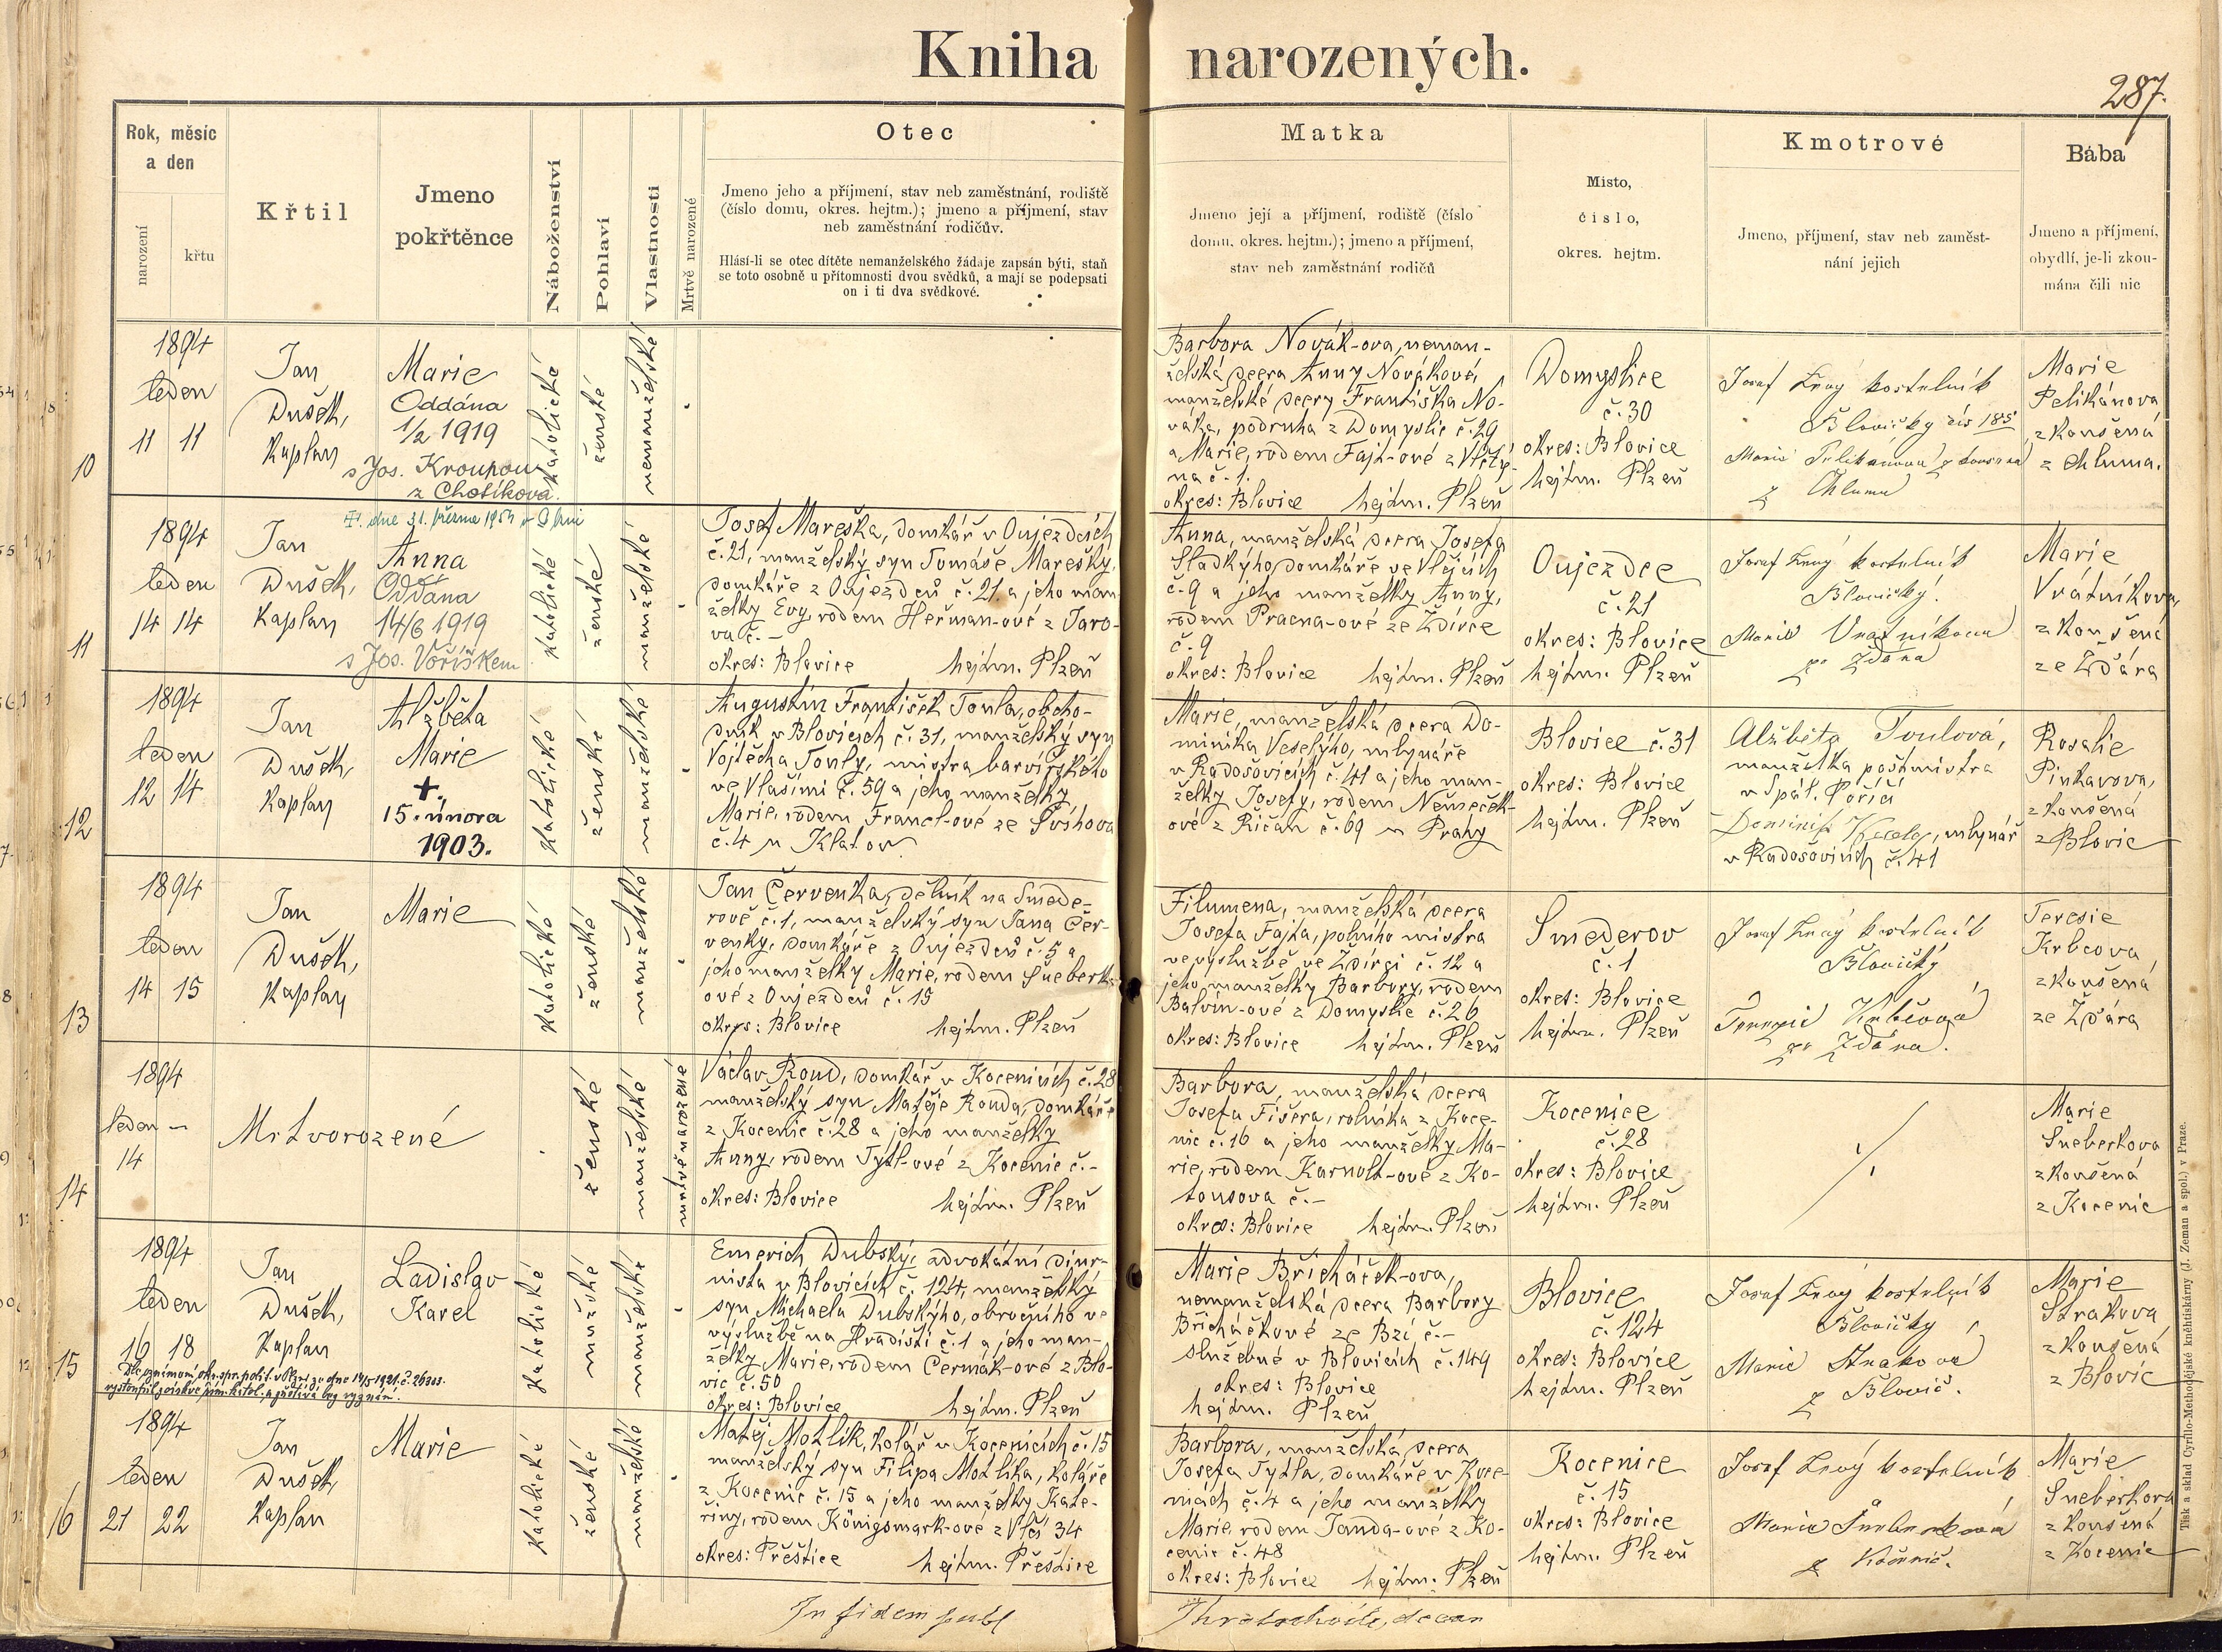 Kniha narozených.
287.
Rok, měsíc
a den
narození
křtu
Křtil
Jmeno
pokřtěnce
Náboženství
Pohlaví
Vlastnosti
Mrtvě narozené
Otec
Jmeno jeho a příjmení, stav neb zaměstnání, rodiště
(číslo domu, okres. hejtm.); jmeno a příjmení, stav
neb zaměstnání rodičův.
Hlásí-li se otec dítěte nemanželského žádaje zapsán býti, staň
se toto osobně u přítomnosti dvou svědků, a mají se podepsati
on i ti dva svědkové.
Matka
Jmeno její a příjmení, rodiště (číslo
domu, okres. hejtm.); jmeno a příjmení,
stav neb zaměstnání rodičů
Místo,
číslo,
okres. hejtm.
Kmotrové
Jmeno, příjmení, stav neb zaměst-
nání jejich
Bába
Jmeno a příjmení,
obydlí, je-li zkou-
mána čili nic
10
1894
leden
11 11
Jan
Dušek,
Kaplan
Marie
Oddána
1/2 1919
s Jos. Kroupou
z Chotíkova.
Katolické
ženské
nemanželské
Barbora Novák-ova, neman-
želská dcera Anny Novákové,
manželské dcery Františka No-
váka, podruha z Domyslic č. 29
a Marie, rodem Fajt-ové z
na č. 1.
okres: Blovice hejtm. Plzeň
Domyslice
č. 30
okres: Blovice
hejtm. Plzeň
Josef kostelník
Blovický čís 185
Marie Pelikánova zkoušena
z Chlumu
Marie
Pelikánova
zkoušená
z Chluma.
11
1894
leden
14 14
Jan
Dušek,
Kaplan
dne 31. března
Anna
Oddána
14/6 1919
s Jos. Voříškem
Katolické
ženské
manželské
Josef Mareška, domkář v Oujezdcích
č. 21, manželský syn Tomáše Marešky,
domkáře z Oujezdců č. 21 a jeho man-
želky Evy, rodem Heřman-ové z Jaro-
va č. –
okres: Blovice hejtm. Plzeň
Anna, manželská dcera Josefa
Sladkýho, domkáře ve Vlčejších
č. 9 a jeho manželky Anny,
rodem Pracna-ové ze Ždírce
č. 9
okres: Blovice hejtm. Plzeň
Oujezdce
č. 21
okres: Blovice
hejtm. Plzeň
Josef kostelník
Blovický.
Marie Vrátníkova
ze Ždára
Marie
Vrátníkova,
zkoušená
ze Žďára
12
1894
leden
12 14
Jan
Dušek,
Kaplan
Alžběta
Marie
+
15. února
1903.
Katolické
ženské
manželské
Augustin František Toula, obcho-
dník v Blovicích č. 31, manželský syn
Vojtěcha Touly, mistra barvířského
ve Vlašimi č. 59 a jeho manželky
Marie, rodem Francl-ové ze Švihova
č. 4 u Klatov
Marie, manželská dcera Do-
minika Veselýho, mlynáře
v Radošovicích č. 41 a jeho man-
želky Josefy, rodem Němeček-
ové z Říčan č. 69 u Prahy
Blovice č. 31
okres: Blovice
hejtm. Plzeň
Alžběta Toulová,
manželka poštmistra
v Spál. Poříčí
Dominik mlynář
v Radošovicích č. 41
Rosalie
Pinkavova,
zkoušená
z Blovic
13
1894
leden
14 15
Jan
Dušek,
Kaplan
Marie
Katolické
ženské
manželské
Jan Červenka, dělník na Smede-
rově č. 1, manželský syn Jana Čer-
venky, domkáře z Oujezdců č. 5 a
jeho manželky Marie, rodem Šneberk-
ové z Oujezdců č. 15
okres: Blovice hejtm. Plzeň
Filumena, manželská dcera
Josefa Fajta, polního mistra
ve výslužbě ve Ždírci č. 12 a
jeho manželky Barbory, rodem
Balvín-ové z Domyslic č. 26
okres: Blovice hejtm. Plzeň
Smederov
č. 1
okres: Blovice
hejtm. Plzeň
Josef kostelník
Blovický
Terezie Krbcová
ze Ždára.
Teresie
Krbcova
zkoušená
ze Žďára
14
1894
leden –
14
Mrtvorozené
ženské
manželské
mrtvě narozené
Václav Roud, domkář v Kocenicích č. 28
manželský syn Matěje Rouda, domkáře
z Kocenic č. 28 a jeho manželky
Anny, rodem Tytl-ové z Kocenic č. –
okres: Blovice hejtm. Plzeň
Barbora, manželská dcera
Josefa Fišera, rolníka z Koce-
nic č. 16 a jeho manželky Ma-
rie, rodem Karnolt-ové z Ko-
tousova č. –
okres: Blovice hejtm. Plzeň
Kocenice
č. 28
okres: Blovice
hejtm. Plzeň
Marie
Šneberkova
zkoušená
z Kocenic
15
1894
leden
16 18
Jan
Dušek,
Kaplan
Ladislav
Karel
Katolické
mužské
manželské
Emerich Dubský, advokátní diur-
nista v Blovicích č. 124, manželský
syn Michaela Dubskýho, obročního ve
výslužbě na Hradišti č. 1 a jeho man-
želky Marie, rodem Čermák-ové z Blo-
vic č. 50
okres: Blovice hejtm. Plzeň
Marie Břicháček-ova,
nemanželská dcera Barbory
Břicháčkové ze Bzí č. –
služebné v Blovicích č. 149
okres: Blovice
hejtm. Plzeň
Blovice
č. 124
okres: Blovice
hejtm. Plzeň
Josef kostelník
Blovický
Marie Strakova
z Blovic.
Marie
Strakova
zkoušená
z Blovic
Dle oznámení okr. spr. polit. v ze dne 14/5 1921 č. 26303.
vystoupil z církve řím. katol. a zůstává bez vyznání.
16
1894
leden
21 22
Jan
Dušek,
Kaplan
Marie
Katolické
ženské
manželské
Matěj Motlík, kolář v Kocenicích č. 15
manželský syn Filipa Motlíka, koláře
z Kocenic č. 15 a jeho manželky Kate-
řiny, rodem Königsmark-ové z Vlčí 34
okres: Přeštice hejtm. Přeštice
Barbora, manželská dcera
Josefa Tytla, domkáře v Koce-
nicích č. 4 a jeho manželky
Marie, rodem Janda-ové z Ko-
cenic č. 48
okres: Blovice hejtm. Plzeň
Kocenice
č. 15
okres: Blovice
hejtm. Plzeň
Josef kostelník
Marie Šneberkova
z Kocenic.
Marie
Šneberkova
zkoušená
z Kocenic
In fidem publ
decan
Tisk a sklad Cyrillo-Methodějské kněhtiskárny (J. Zeman a spol.) v Praze.